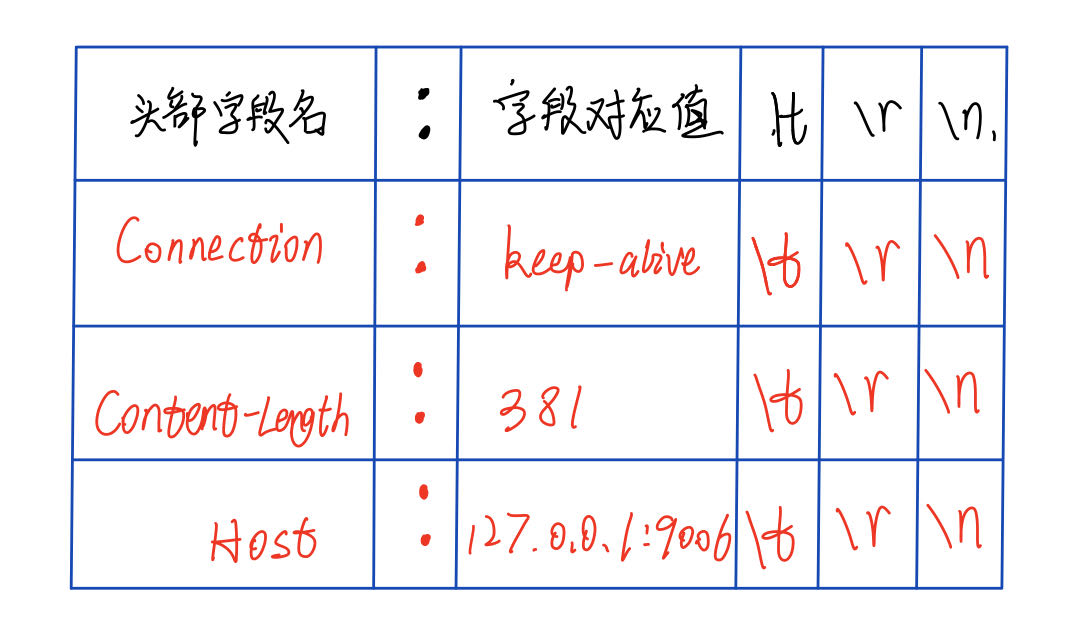 头部字段名 : 字段对应值 \t \r \n.
Connection : keep-alive \t \r \n
Content-Length : 381 \t \r \n
Host : 127.0.0.1:9006 \t \r \n